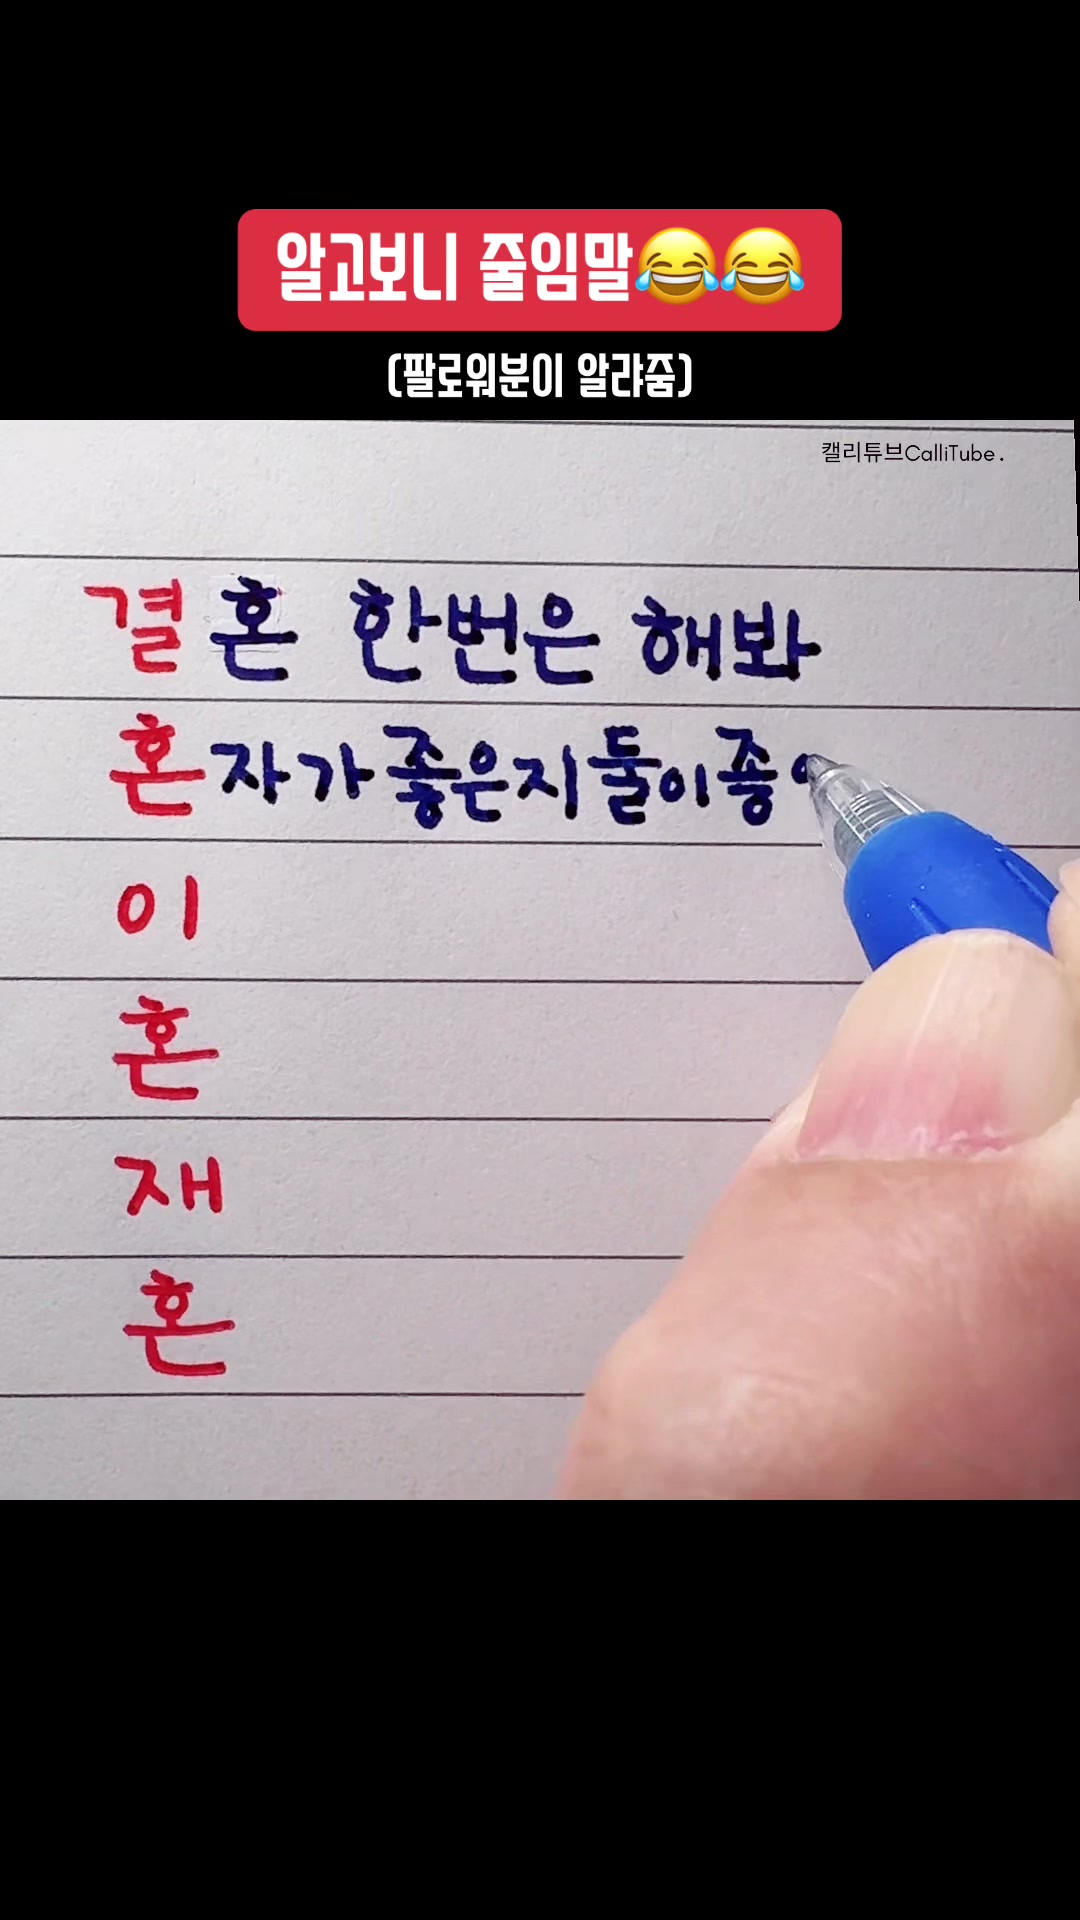 알고보니 줄임말😂😂
(팔로워분이 알랴줌)
캘리튜브CalliTube.
결혼 한번은 해봐
혼자가좋은지둘이좋
이
혼
재
혼